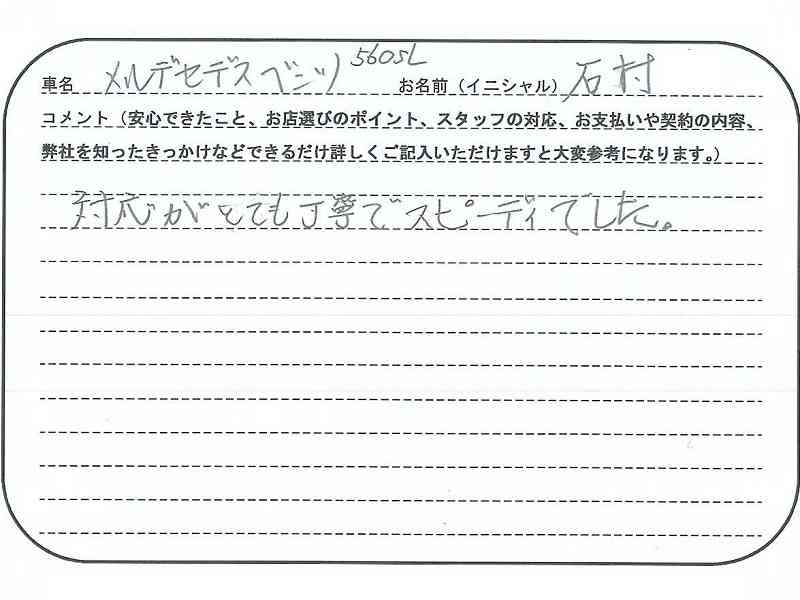 車名 メルデセデスベンツ 560SL お名前（イニシャル）石村
コメント（安心できたこと、お店選びのポイント、スタッフの対応、お支払いや契約の内容、
弊社を知ったきっかけなどできるだけ詳しくご記入いただけますと大変参考になります。）
対応がとても丁寧でスピーディでした。